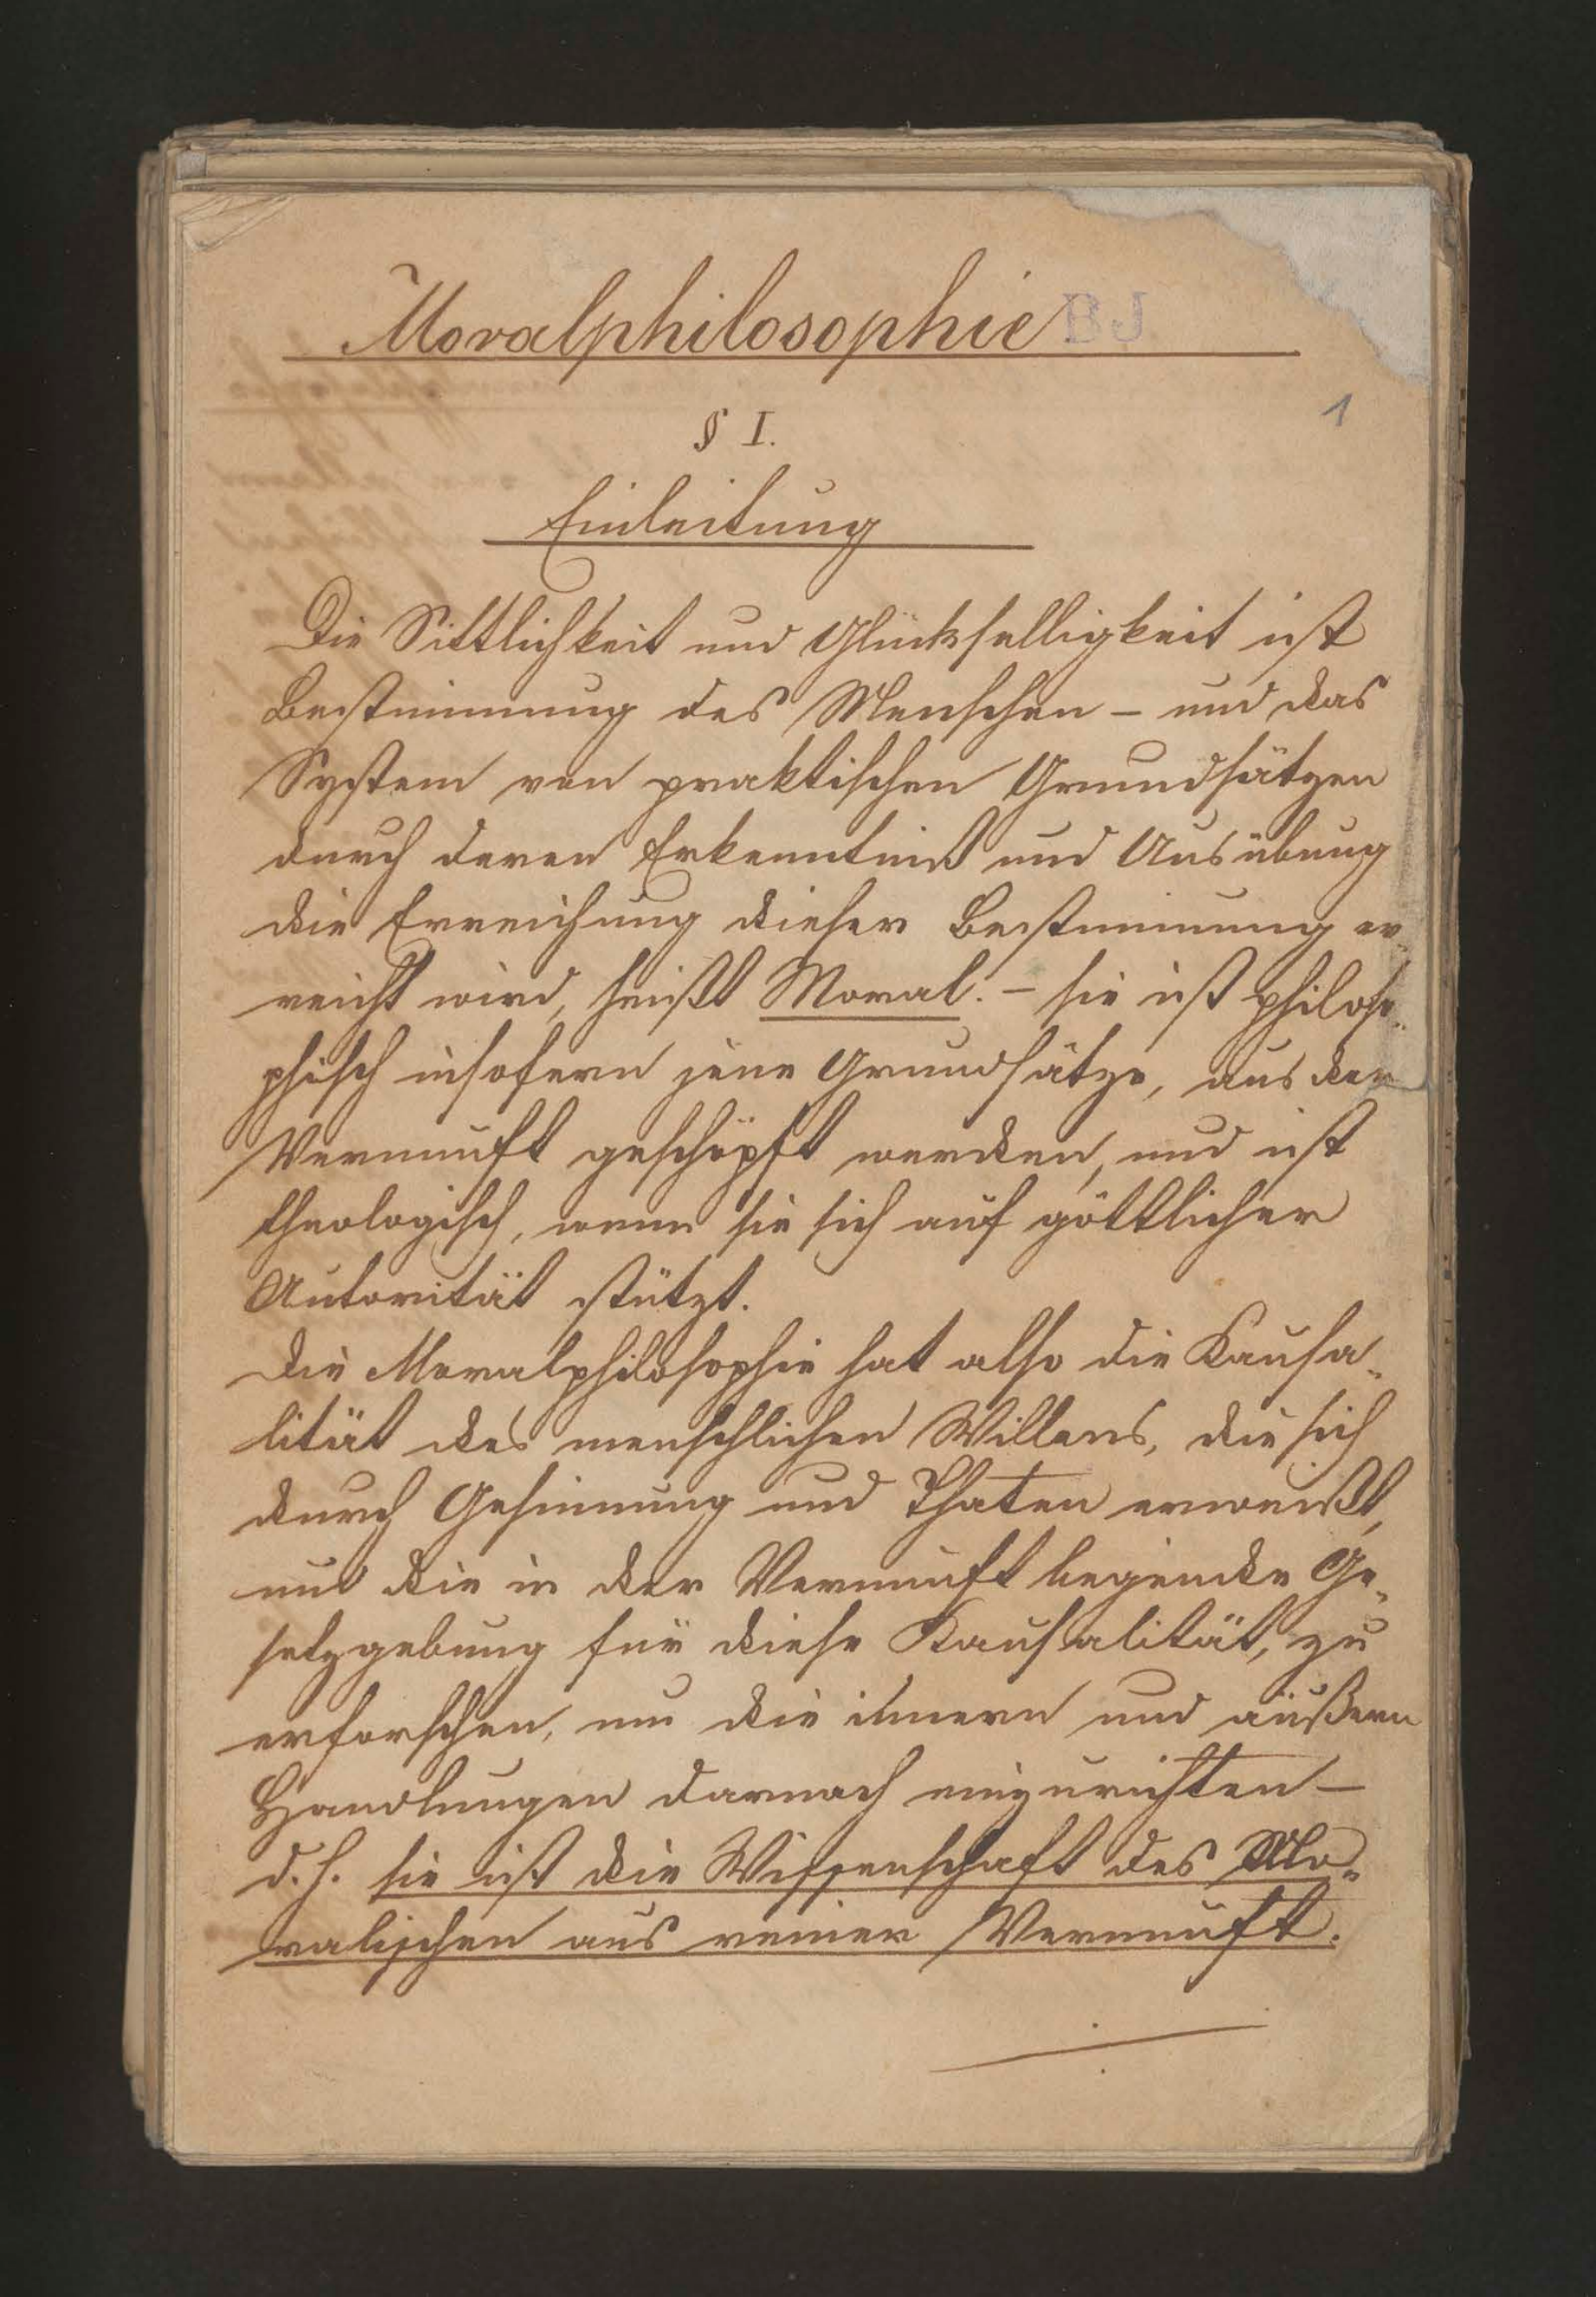 Moralphilosophie BJ
1
§ I.
Einleitung
Die Sittlichkeit und Glückselligkeit ist
Bestimmung des Menschen – und das
System von praktischen Grundsätzen
durch deren Erkenntniß und Ausübung
die Erreichung dieser Bestimmung er-
reicht wird, heißt Moral. – sie ist philoso-
phisch insofern jene Grundsätze, aus der
Vernunft geschöpft werden, und ist
theologisch, wenn sie sich auf göttlicher
Autorität stützt.
Die Moralphilosophie hat also die Kausa-
lität des menschlichen Willens, die sich
durch Gesinnung und Thaten erweißt,
und die in der Vernunft Ge-
setzgebung für diese Kausalität, zu
erforschen, um die innern und äußern
Handlungen darnach einzurichten –
d. h. sie ist die Wissenschaft des Mo-
ralischen aus reiner Vernunft.